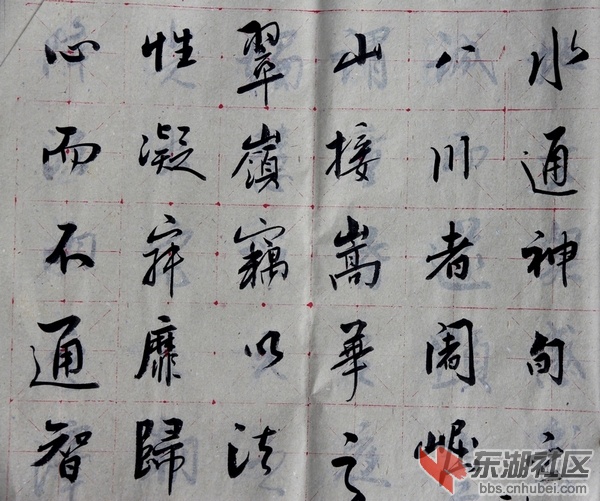 水通神甸之
八川者闍崛
山接嵩華之
翠嶺竊以法
性凝寂靡歸
心而不通智
东湖社区
bbs.cnhubei.com